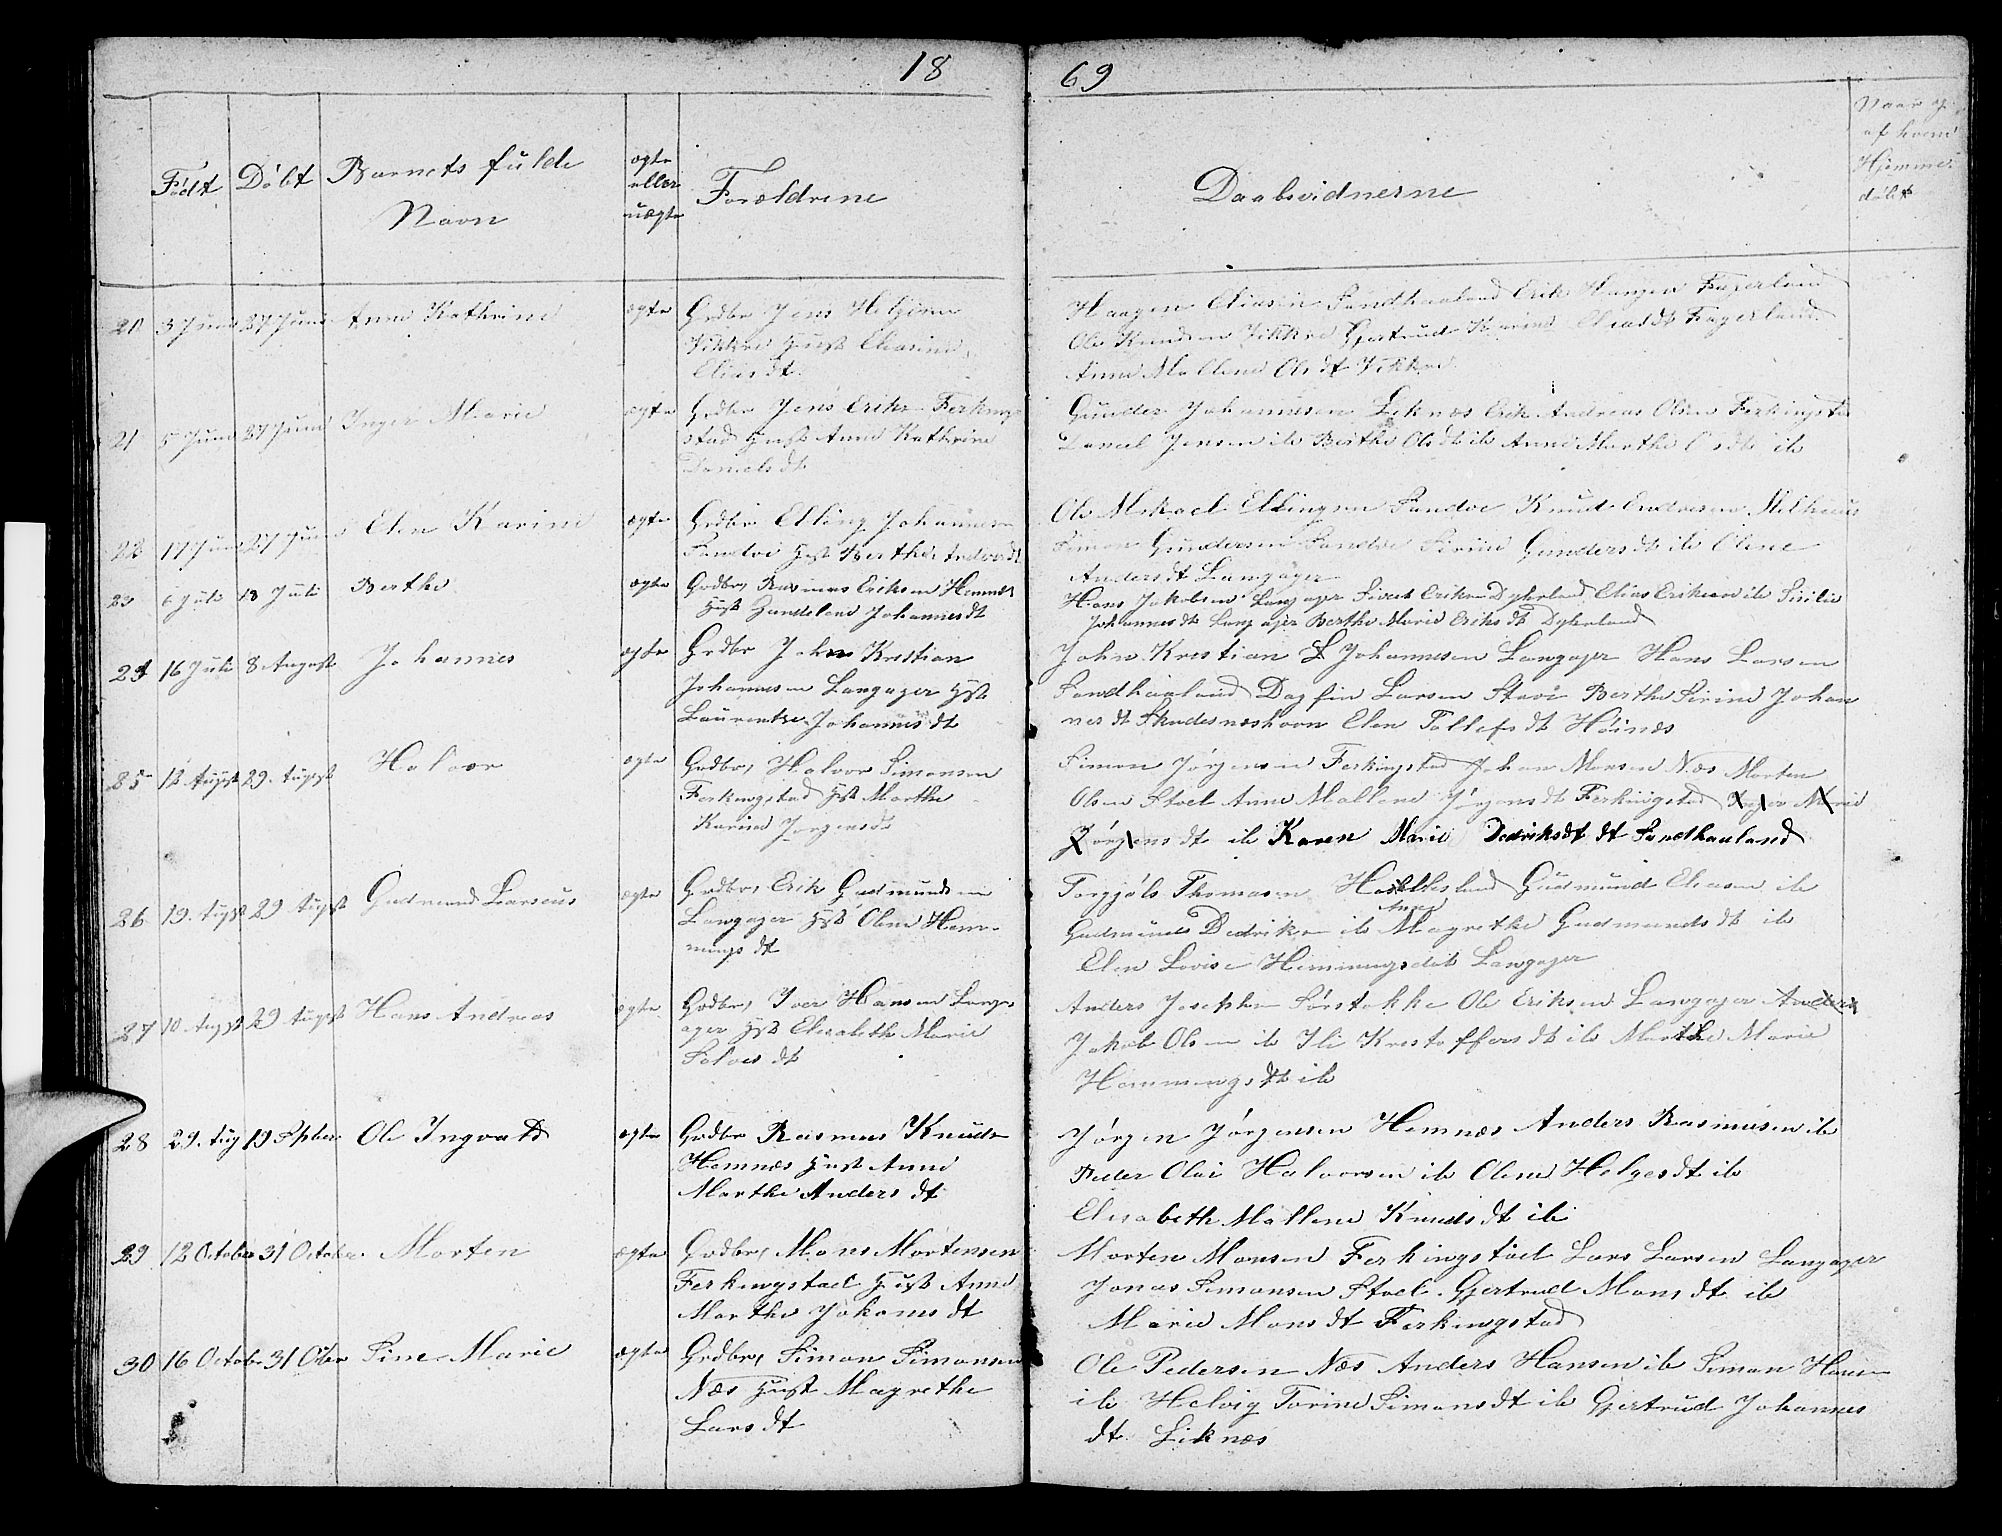 18 69
Født Døbt Barnets fulde Navn ægte eller uægte Forældrene Daabsvidnerne Naar og af hvem Hjemmedøbt
20 3 Juni 27 Juni Anne Kathrine ægte Grdbr Jens Helgesen
Vikkre Hust Eliasine
Elias dt.
Haagen Eliasen Sandhaaland Erik Haagen Fagerland
Ole Knudsen Vikkre Gjertrud Karine Eliasdt Fagerland
Anne Mallene Ols dt Vikkre
21 5 Juni 27 Juni Inger Marie ægte Grdbr Jens Eriks Ferkingstad
Hust Anne Kathrine
Daniels dt
Gunder Johannesen Liknæs Erik Andreas Olsen Ferkingstad
Daniel Jensen ib Berthe Ols dt ib Anne Marthe ib
22 17 Juni 27 Juni Elen Karine ægte Grdbr Elling Johannesen
Sandve Hust Berthe Andersdt
Ole Mikael Ellingsen Sandve Knud Endresen Milhuus
Simon Gundersen Sandve Sirine Gunders dt ib Oline
Anders dt Langager
23 6 Juli 18 Juli Berthe ægte Grdbr, Rasmus Eriksen Hemnes
Hust Gundelene Johannesdt
Hans Jakobsen Langager Sivert Eriksen Dyrland Elias Eriksen ib Sirilie
Johannes dt Langager Berthe Marie Eriks dt Dyrland
24 16 Juli 8 August Johannes ægte Grdbr John Kristian
Johannesen Langager Hust
Laurentse Johannes dt
John Kristian Johannesen Langager Hans Larsen
Sandhaaland Dagfin Larsen Stave Berthe Sirine Johan
nes dt Skudesneshavn Elen Tollefs dt Høines
25 12 August 29. August Halvor ægte Grdbr, Halvor Simonsen
Ferkingstad Hust Marthe
Karine Jørgensdt
Simon Jørgensen Ferkingstad Johan Monsen Næs Morten
Olsen Stoel Anne Mallene Jørgens dt Ferkingstad Inger Marie
Jørgens dt ib Karen Marie Didriksdt dt Sandhaaland
26 19. August 29 August Gudmund Larseus ægte Grdbr, Erik Gudmundsen
Langager Hust Oline Hem-
mings dt
Torgjøls Thomasen Gudmund Eliasen ib
Gudmund Didriks ib Anne Magrethe Gudmunds dt ib
Elen Lovise Hemmingsdt Langager
27 10 August 29 August Hans Andreas ægte Grdbr, Iver Hansen Lang-
ager Hust Elisabeth Marie
Salves dt
Anders Josephsen Sørstokke Ole Eriksen Langager Anders
Jakob Olsen ib Ili Kristoffers dt ib Marthe Marie
Hemmings dt ib
28 29. Aug 19 Spber Ole Ingvald ægte Grdbr Rasmus Knuds
Hemnæs Hust Anne
Marthe Anders dt
Jørgen Jørgensen Hemnæs Anders Rasmusen ib
Peder Olai Halvorsen ib Oline Helges dt ib
Elisabeth Mallene Knuds dt ib
29 12 October 31 October Morten ægte Grdbr, Mons Mortensen
Ferkingstad Hust Anne
Marthe Johannes dt
Morten Monsen Ferkingstad Lars Larsen Langager
Jonas Simonsen Stoel Gjertrud Mons dt ib
Marie Mons dt Ferkingstad
30 16 October 31 Ober Sine Marie ægte Grdbr, Simon Simonsen
Næs Hust Magrethe
Lars dt
Ole Pedersen Næs Anders Hansen ib Simon Hansen
ib Helvig Torine Simons dt ib Gjertrud Johannes
dt Liknæs